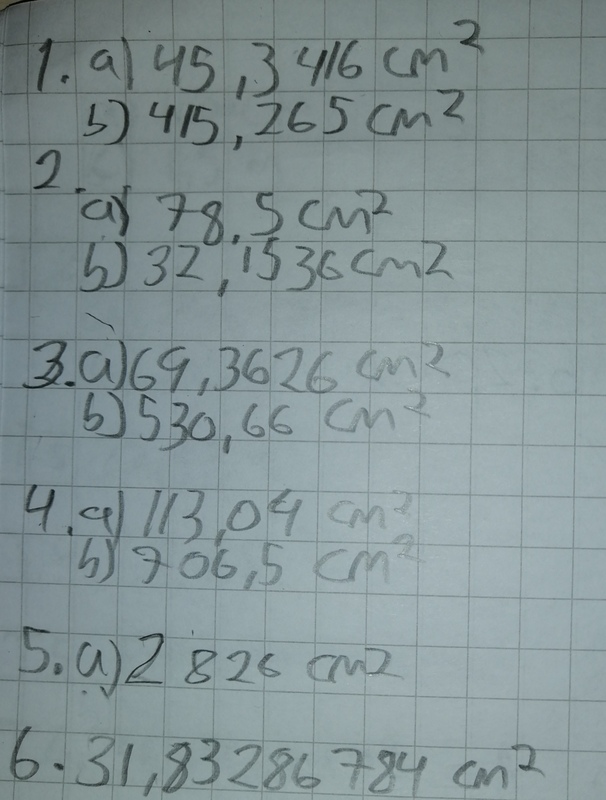 1. a) 45,3416 cm²
b) 415,265 cm²
2.
a) 78,5 cm²
b) 32,1536 cm2
3. a) 69,3626 cm²
b) 530,66 cm²
4. a) 113,04 cm²
b) 706,5 cm²
5. a) 2 826 cm2
6. 31,83286784 cm²